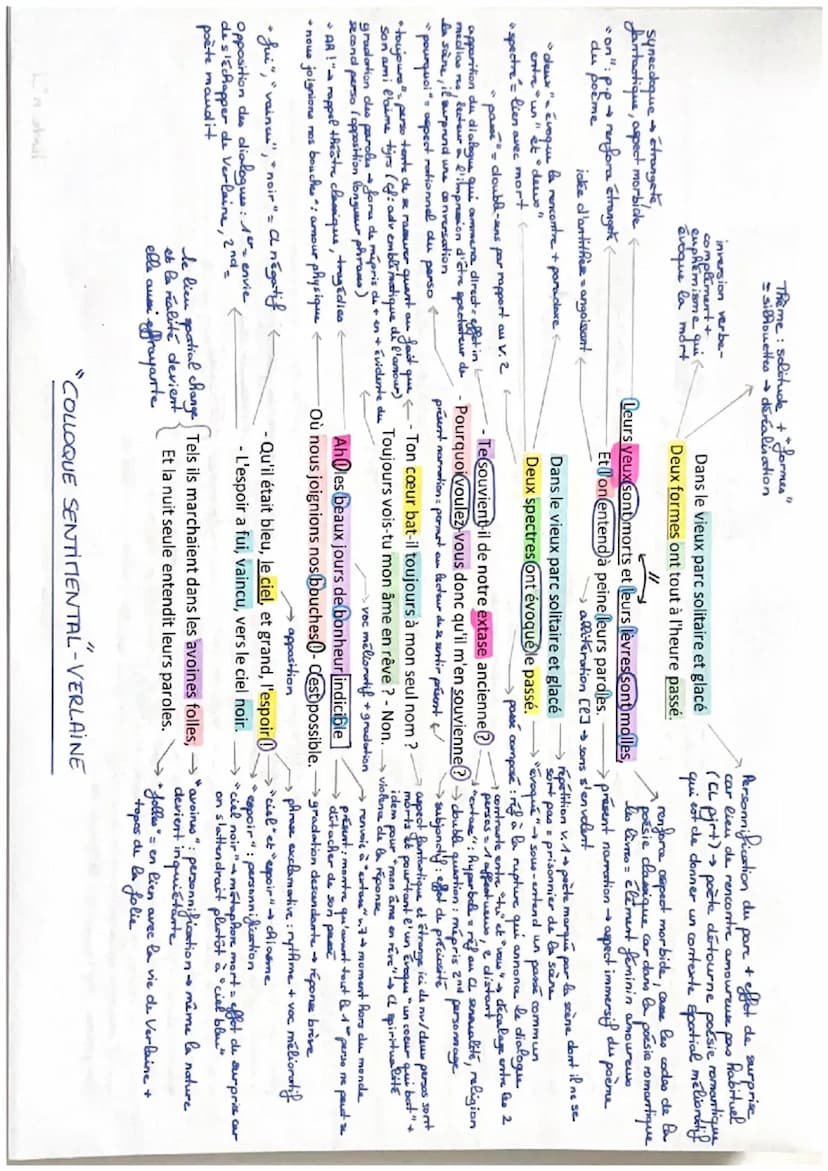 Thème : solitude + "formes"
= silhouettes → déréalisation
inversion verbe-
complément +
euphémisme qui
évoque la mort
Synecdoque → étrangeté
fantastique, aspect morbide
"on" : p.p → renforce étrangeté
du poème
idée d'antithèse = angoissant
"deux" = évoque la rencontre + paradoxe
entre "un" et "deux"
"spectre" = lien avec mort
"passé" = double-sens par rapport au v. 2
apparition du dialogue qui commence direct : effet in
medias res, lecteur a l'impression d'être spectateur de
la scène, il surprend une conversation
"pourquoi" = aspect rationnel du perso
"toujours" = perso tente de se rassurer quant au fait que
son ami l'aime tjrs (cf : adv emblématique de l'amour)
gradation des paroles → forme de mépris de + en + évidente du
second perso (opposition longueur phrases)
"Ah !" → rappel théâtre classique, tragédie
"nous joignions nos bouches" : amour physique
"fui", "vaincu", "noir" = CL négatif
opposition des dialogues : 1er = envie
de s'échapper de Verlaine, 2nd =
poète maudit
le lieu spatial change
et la réalité devient
elle aussi effrayante
Dans le vieux parc solitaire et glacé
Deux formes ont tout à l'heure passé.
Leurs yeux sont morts et leurs lèvres sont molles,
Et l'on entend à peine leurs paroles.
→ allitération [l] → sons s'envolent
Dans le vieux parc solitaire et glacé
Deux spectres ont évoqué le passé.
- Te souvient-il de notre extase ancienne ?
- Pourquoi voulez-vous donc qu'il m'en souvienne ?
présent narration = permet au lecteur de se sentir présent
- Ton cœur bat-il toujours à mon seul nom ?
Toujours vois-tu mon âme en rêve ? - Non.
→ voc mélioratif + gradation
Ah ! les beaux jours de bonheur indicible
Où nous joignions nos bouches ! - C'est possible.
→ apposition
- Qu'il était bleu, le ciel, et grand, l'espoir !
- L'espoir a fui, vaincu, vers le ciel noir.
Tels ils marchaient dans les avoines folles,
Et la nuit seule entendit leurs paroles.
Personnification du parc + effet de surprise
car lieu de rencontre amoureuse pas habituel
(CL pjrt) → poète détourne poésie romantique
qui est de donner un contexte spatial mélioratif
renforce aspect morbide, casse les codes de la
poésie classique car dans la poésie romantique
les lèvres = élément féminin amoureux
→ présent narration → aspect immersif du poème
répétition v.1 → poète marqué par la scène dont il ne se
sort pas = prisonnier de la scène
"évoqué" → sous-entend un passé commun
→ passé composé : réf à la rupture qui annonce le dialogue
contraste entre "te" et "vous" → décalage entre les 2
persos = 1 affectueux, 2 distant
"extase" : hyperbole = réf au CL sensualité, religion
→ double question : mépris 2nd personnage
→ subjonctif : effet de préciosité
aspect fantastique et étrange ici de nv / deux persos sont
morts et pourtant l'un évoque "un cœur qui bat" +
idem pour "mon âme en rêve" → CL spiritualité
→ violence de la réponse
→ renvoie à "extase" v.7 → moment hors du monde
présent : montre qu'avant tout le 1er perso ne peut se
détacher de son passé
→ gradation descendante → réponse brève
→ phrase exclamative : rythme + voc mélioratif
→ "ciel" et "espoir" → chiasme
"espoir" : personnification
→ "ciel noir" → métaphore mort = effet de surprise car
on s'attendrait plutôt à "ciel bleu"
→ "avoines" : personnification → même la nature
devient inquiétante
→ "folles" = en lien avec la vie de Verlaine +
topos de la folie
"COLLOQUE SENTIMENTAL" - VERLAINE